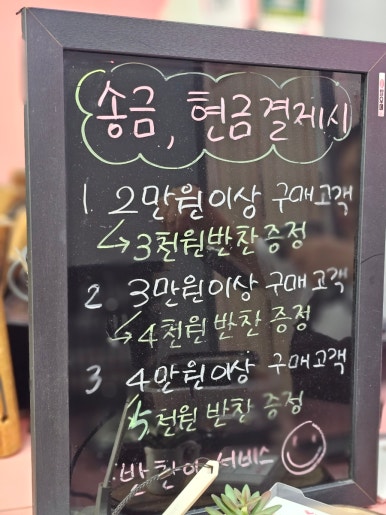 송금, 현금결제시
1 2만원이상 구매고객
↳ 3천원반찬증정
2 3만원이상 구매고객
↳ 4천원 반찬 증정
3 4만원이상 구매고객
↳ 5천원 반찬 증정
서비스